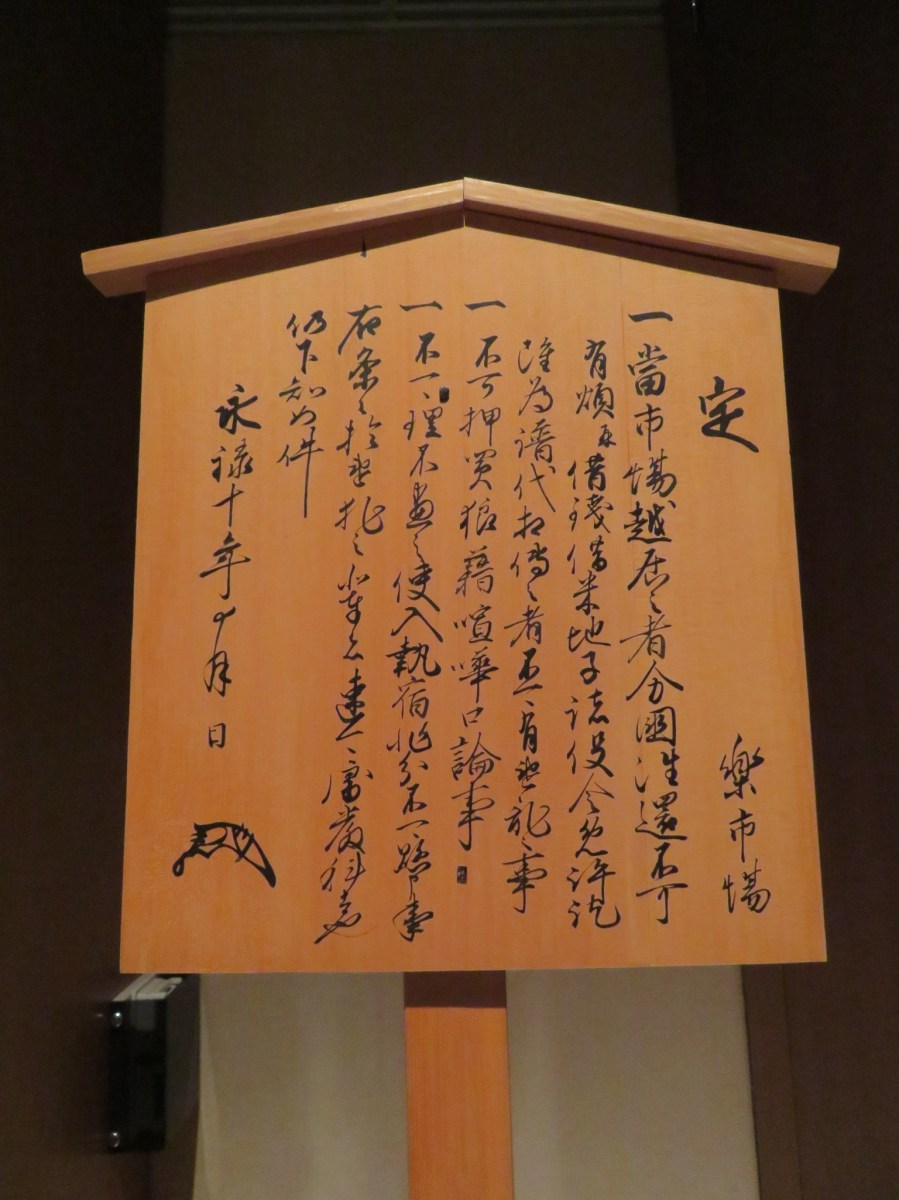 定 樂市場
一當市場越居之者分國往還不可
有煩并借錢借米地子諸役令免許訖
雖為譜代相傳之者不可有違乱之事
一不可押買狼藉喧嘩口論事
一不可理不盡之使入執宿非分不可懸申事
右条々於違犯之輩者速可處嚴科者也
仍下知如件
永禄十年十月日